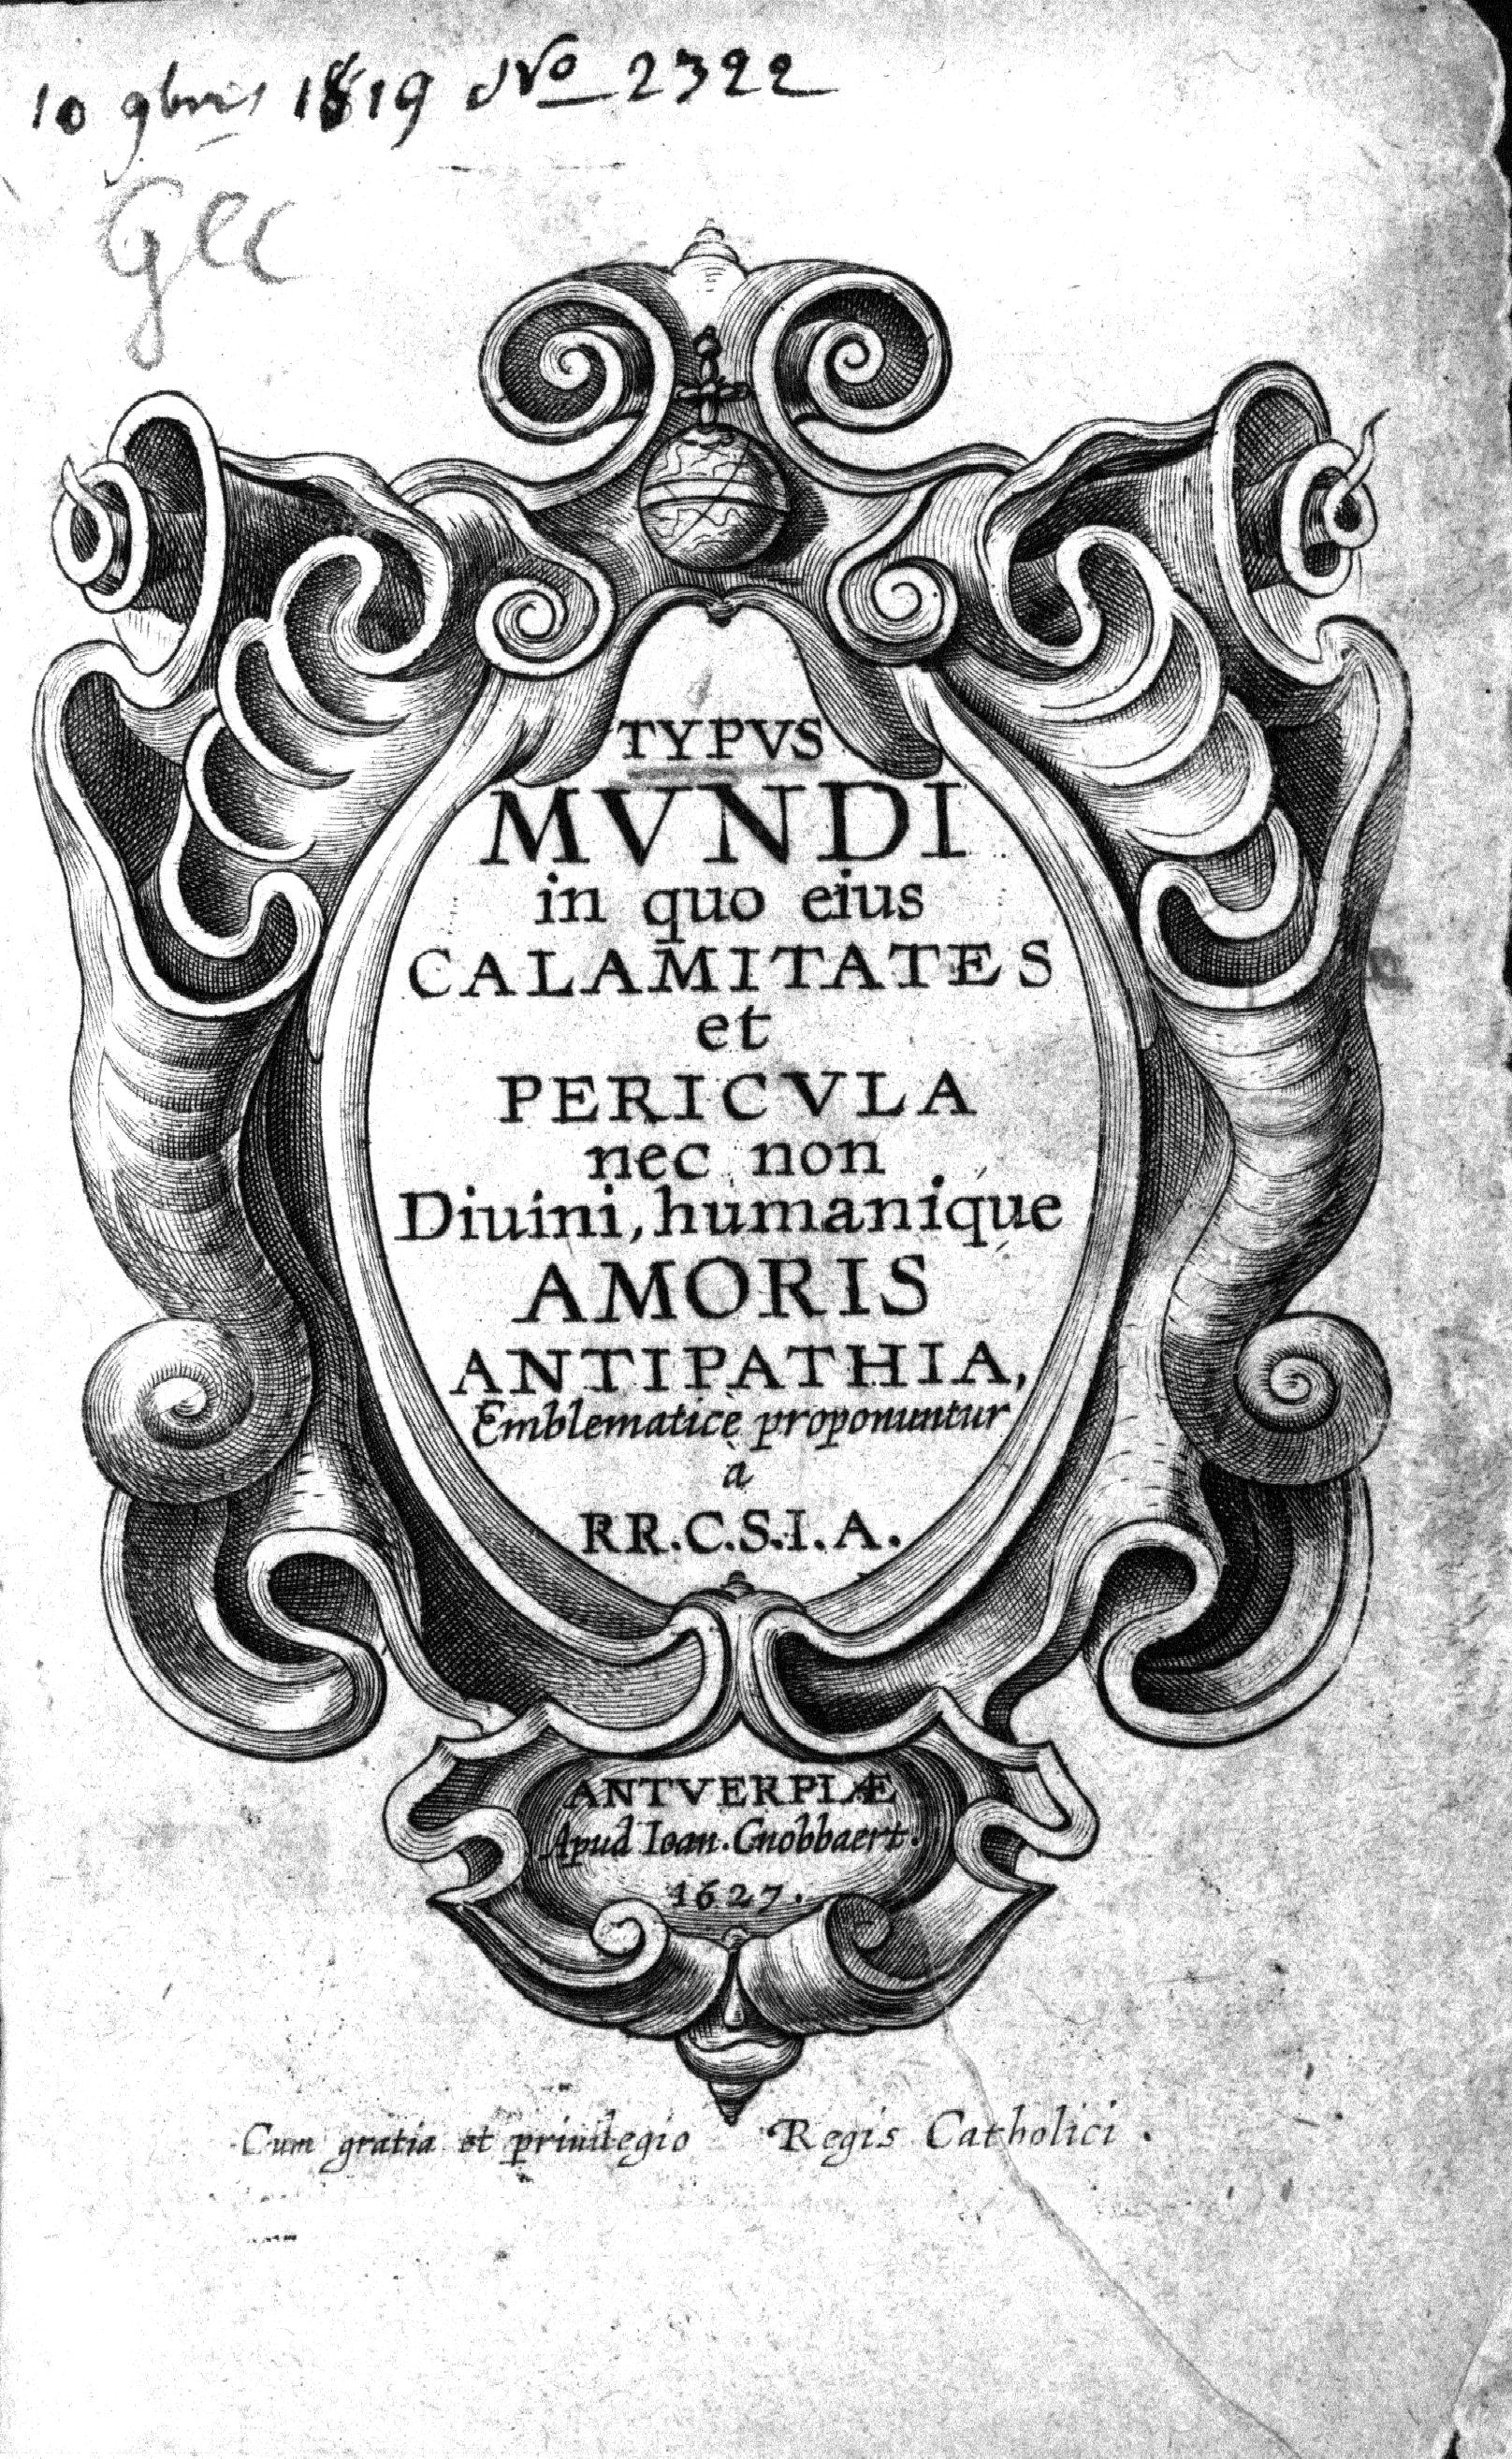 10 9bris 1819 No 2322
Gec
TYPVS
MVNDI
in quo eius
CALAMITATES
et
PERICVLA
nec non
Diuini, humanique
AMORIS
ANTIPATHIA,
Emblematicè proponuntur
à
RR.C.S.I.A.
ANTVERPIÆ
Apud Ioan. Cnobbaert.
1627.
Cum gratia et priuilegio Regis Catholici.